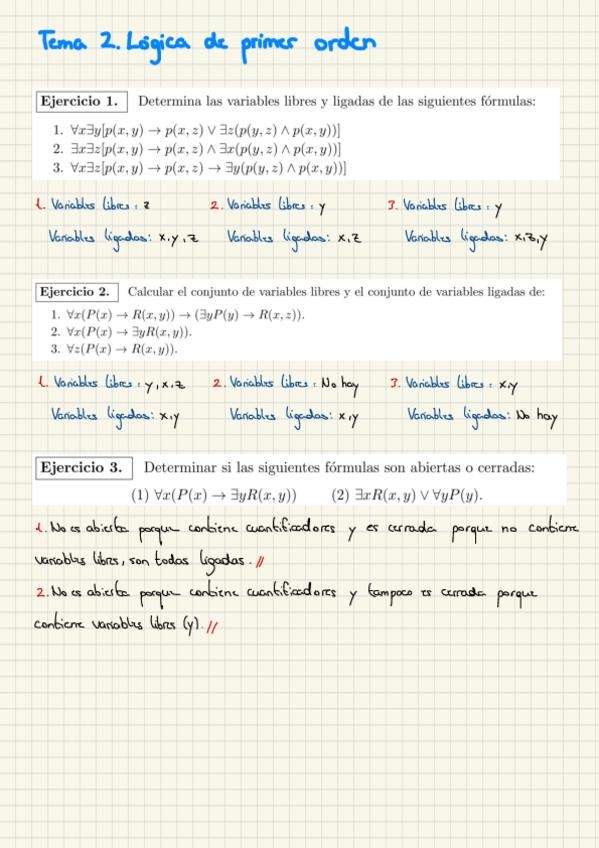 Tema 2. Lógica de primer orden
Ejercicio 1. Determina las variables libres y ligadas de las siguientes fórmulas:
1. ∀x∃y[p(x, y) → p(x, z) ∨ ∃z(p(y, z) ∧ p(x, y))]
2. ∃x∃z[p(x, y) → p(x, z) ∧ ∃x(p(y, z) ∧ p(x, y))]
3. ∀x∃z[p(x, y) → p(x, z) → ∃y(p(y, z) ∧ p(x, y))]
1. Variables libres: z 2. Variables libres: y 3. Variables libres: y
Variables ligadas: x,y,z Variables ligadas: x,z Variables ligadas: x,z,y
Ejercicio 2. Calcular el conjunto de variables libres y el conjunto de variables ligadas de:
1. ∀x(P(x) → R(x, y)) → (∃yP(y) → R(x, z)).
2. ∀x(P(x) → ∃yR(x, y)).
3. ∀z(P(x) → R(x, y)).
1. Variables libres: y,x,z 2. Variables libres: No hay 3. Variables libres: x,y
Variables ligadas: x,y Variables ligadas: x,y Variables ligadas: No hay
Ejercicio 3. Determinar si las siguientes fórmulas son abiertas o cerradas:
(1) ∀x(P(x) → ∃yR(x, y)) (2) ∃xR(x, y) ∨ ∀yP(y).
1. No es abierta porque contiene cuantificadores y es cerrada porque no contiene
variables libres, son todas ligadas. //
2. No es abierta porque contiene cuantificadores y tampoco es cerrada porque
contiene variables libres (y). //